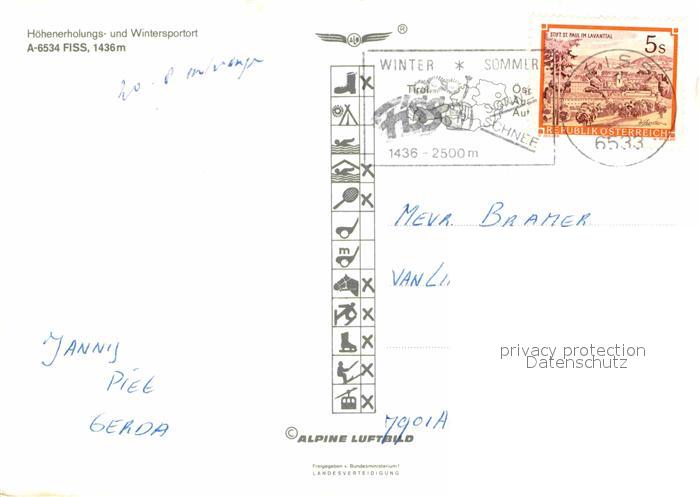 Höhenerholungs- und Wintersportort
A-6534 FISS, 1436 m
®
WINTER * SOMMER
Tirol
FISS
SCHNEE
1436 - 2500 m
6533
STIFT ST. PAUL IM LAVANTTAL
5s
REPUBLIK ÖSTERREICH
m
MEVR. BRAMER
VAN
JANNIS
PIET
GERDA
7901A
privacy protection
Datenschutz
© ALPINE LUFTBILD
Freigegeben v. Bundesministerium f.
LANDESVERTEIDIGUNG